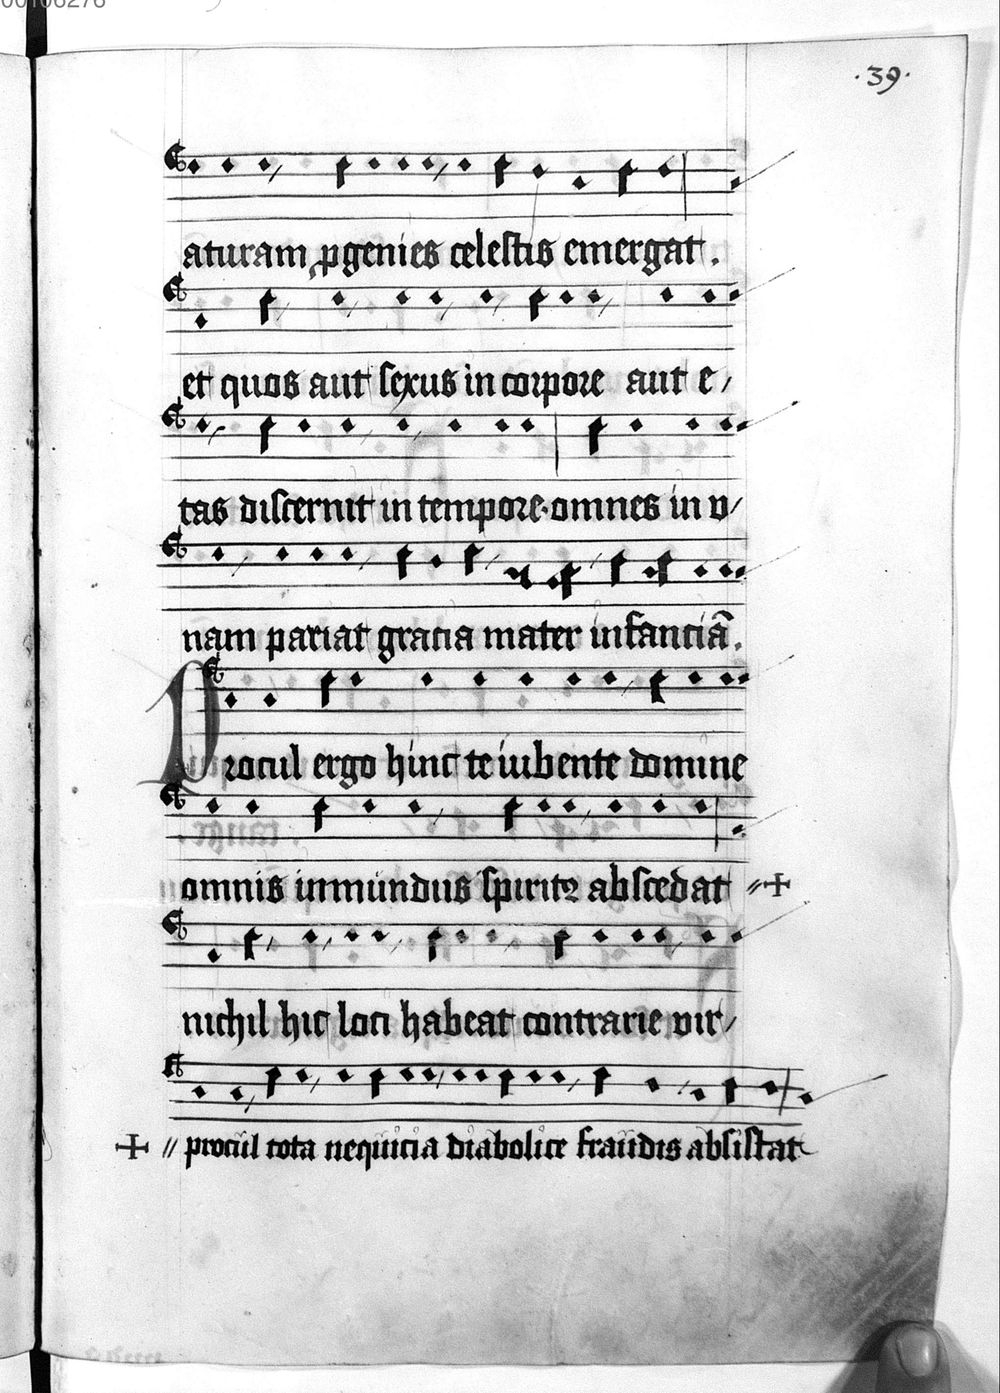 00106276
·39·
aturam ꝓgenies celestis emergat.
et quos aut sexus in corpore aut e/
tas discernit in tempore·omnes in v/
nam pariat gracia mater infanciā.
Procul ergo hinc te iubente domine
omnis inmundus spiritꝰ abscedat //✠
nichil hic loci habeat contrarie vir/
✠ // procul tota nequicia diabolice fraudis absistat